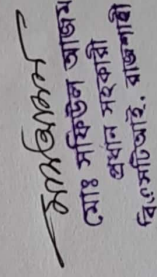 মোঃ সফিউল আজম
প্রধান সহকারী
বি.এসটিআই, রাজশাহী